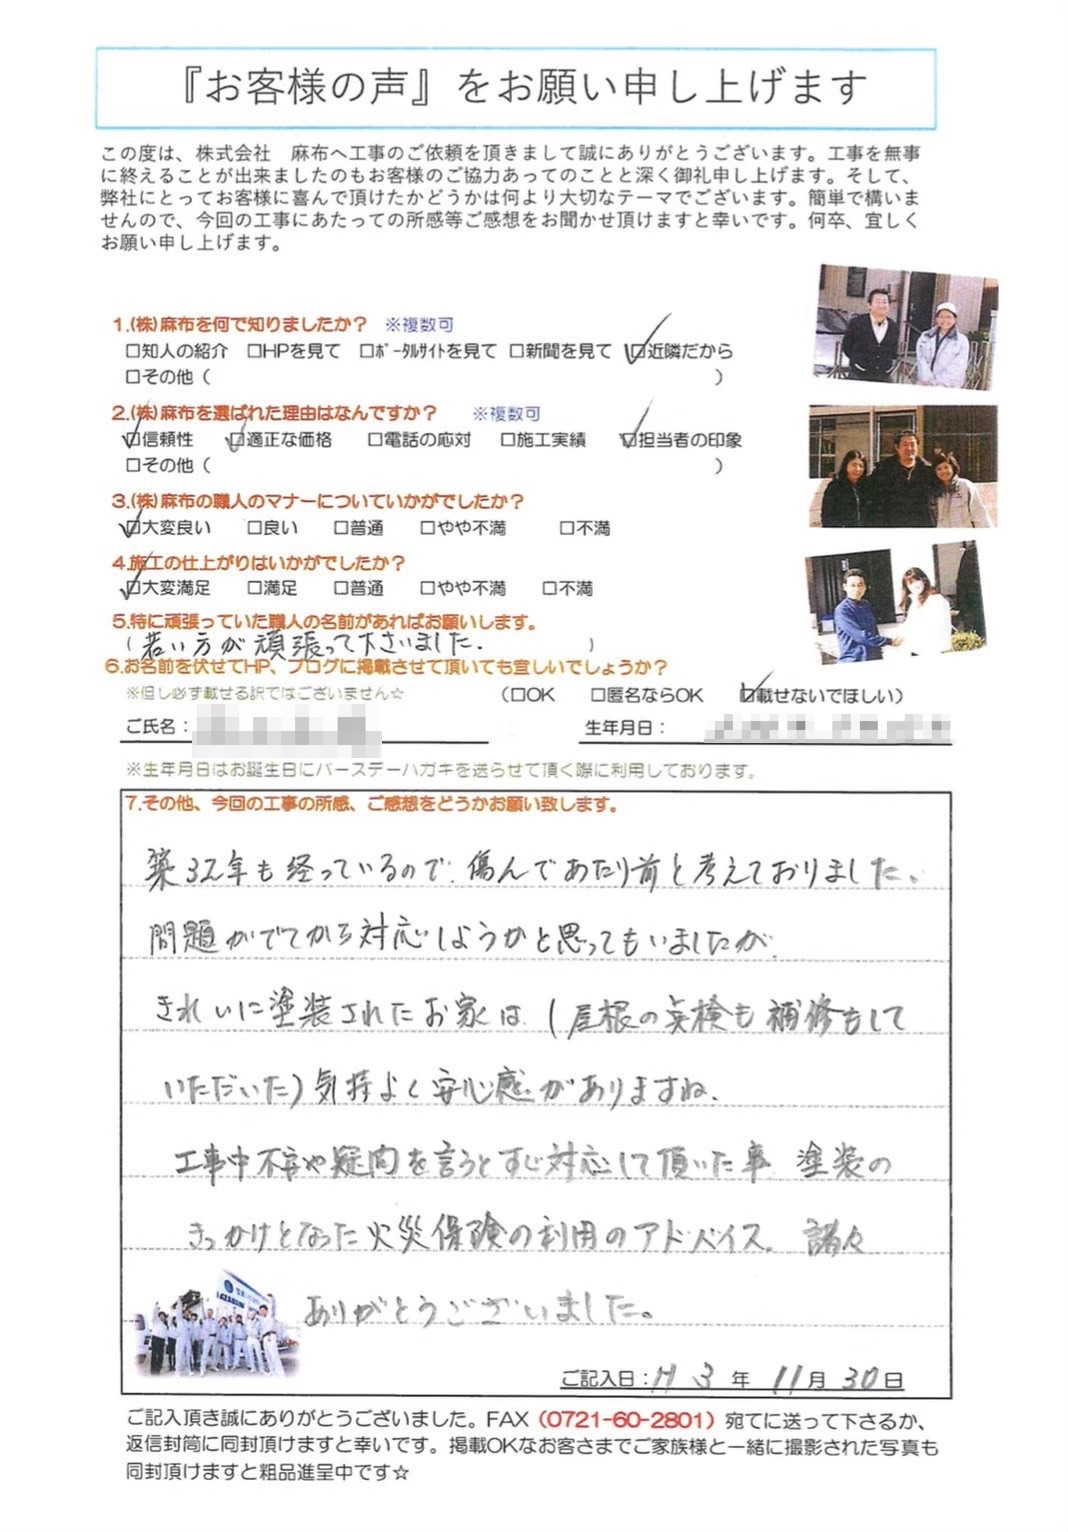 『お客様の声』をお願い申し上げます
この度は、株式会社　麻布へ工事のご依頼を頂きまして誠にありがとうございます。工事を無事
に終えることが出来ましたのもお客様のご協力あってのことと深く御礼申し上げます。そして、
弊社にとってお客様に喜んで頂けたかどうかは何より大切なテーマでございます。簡単で構いま
せんので、今回の工事にあたっての所感等ご感想をお聞かせ頂けますと幸いです。何卒、宜しく
お願い申し上げます。
1.(株)麻布を何で知りましたか？　※複数可
□知人の紹介　□HPを見て　□ﾎﾟｰﾀﾙｻｲﾄを見て　□新聞を見て　☑近隣だから
□その他（　　　）
2.(株)麻布を選ばれた理由はなんですか？　※複数可
☑信頼性　☑適正な価格　□電話の応対　□施工実績　☑担当者の印象
□その他（　　　）
3.(株)麻布の職人のマナーについていかがでしたか？
☑大変良い　□良い　□普通　□やや不満　□不満
4.施工の仕上がりはいかがでしたか？
☑大変満足　□満足　□普通　□やや不満　□不満
5.特に頑張っていた職人の名前があればお願いします。
（若い方が頑張って下さいました.　）
6.お名前を伏せてHP、ブログに掲載させて頂いても宜しいでしょうか？
※但し必ず載せる訳ではございません☆　（□OK　□匿名ならOK　☑載せないでほしい）
ご氏名：　生年月日：
※生年月日はお誕生日にバースデーハガキを送らせて頂く際に利用しております。
7.その他、今回の工事の所感、ご感想をどうかお願い致します。
築32年も経っているので、傷んであたり前と考えておりました、
問題がでてから対応しようかと思ってもいましたが
きれいに塗装されたお家は（屋根の点検も補修もして
いただいた）気持よく安心感がありますね、
工事中不安や疑問を言うとすぐ対応して頂いた事　塗装の
きっかけとなった火災保険の利用のアドバイス、諸々
ありがとうございました。
ご記入日：　3年　11月　30日
ご記入頂き誠にありがとうございました。FAX（0721-60-2801）宛てに送って下さるか、
返信封筒に同封頂けますと幸いです。掲載OKなお客さまでご家族様と一緒に撮影された写真も
同封頂けますと粗品進呈中です☆